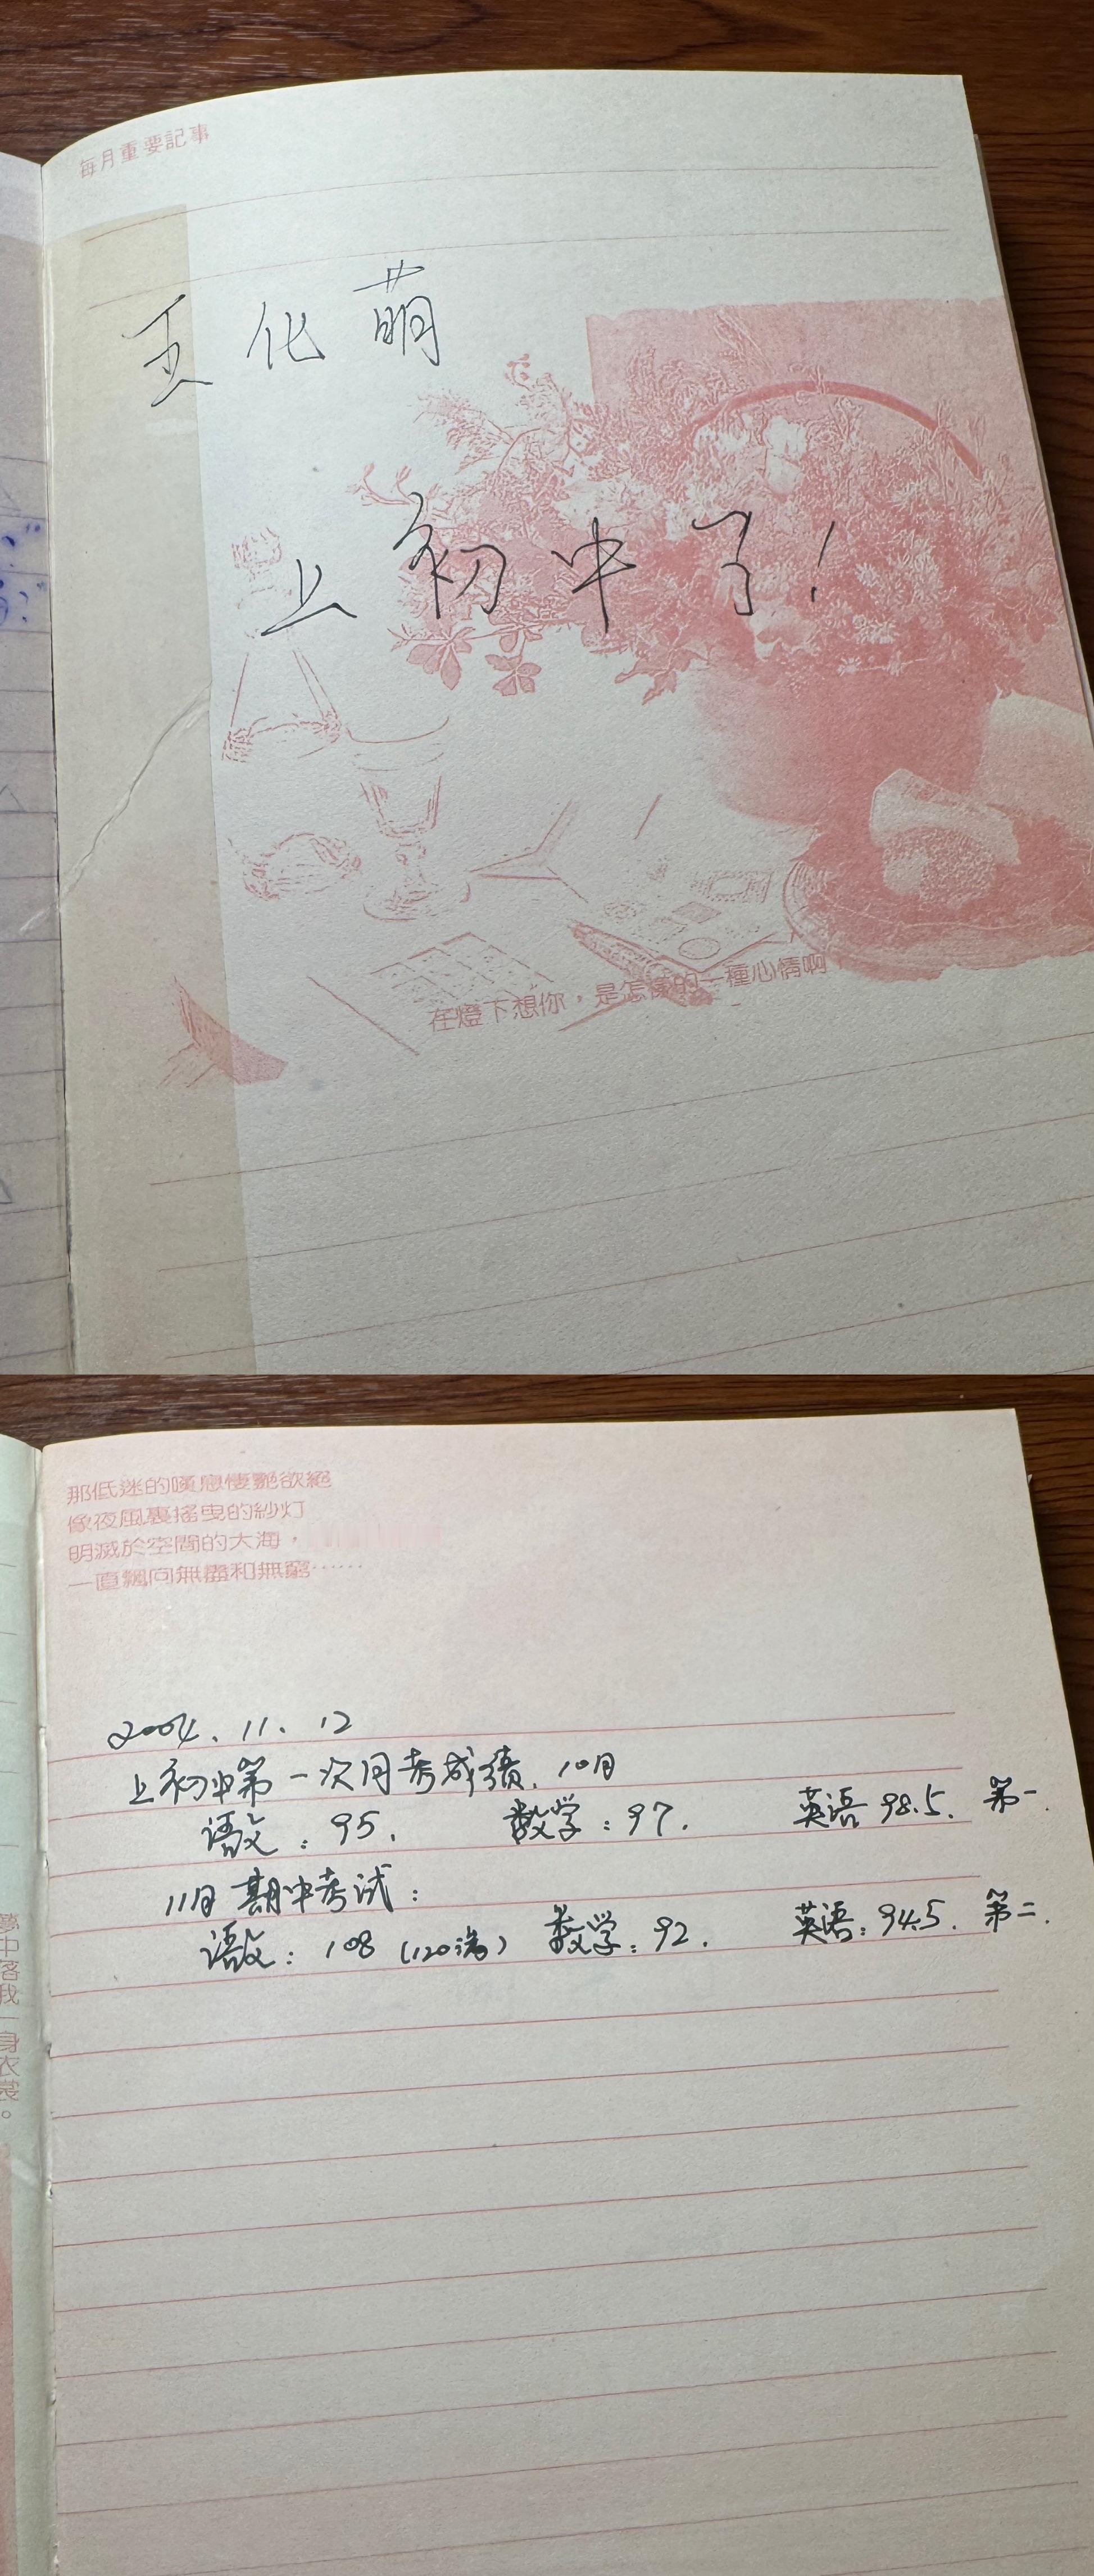 每月重要記事
王化萌
上初中了!
在燈下想你,是怎樣的一種心情啊
那低迷的嘆息悽艷欲絕
像夜風裏搖曳的紗灯
明滅於空間的大海,
一直飄向無盡和無窮……
2004.11.12
上初中第一次月考成绩. 10月
语文:95. 数学:97. 英语 98.5. 第一.
11月期中考试:
语文:108(120满) 数学:92. 英语:94.5. 第二.
夢中落我一身衣裳。